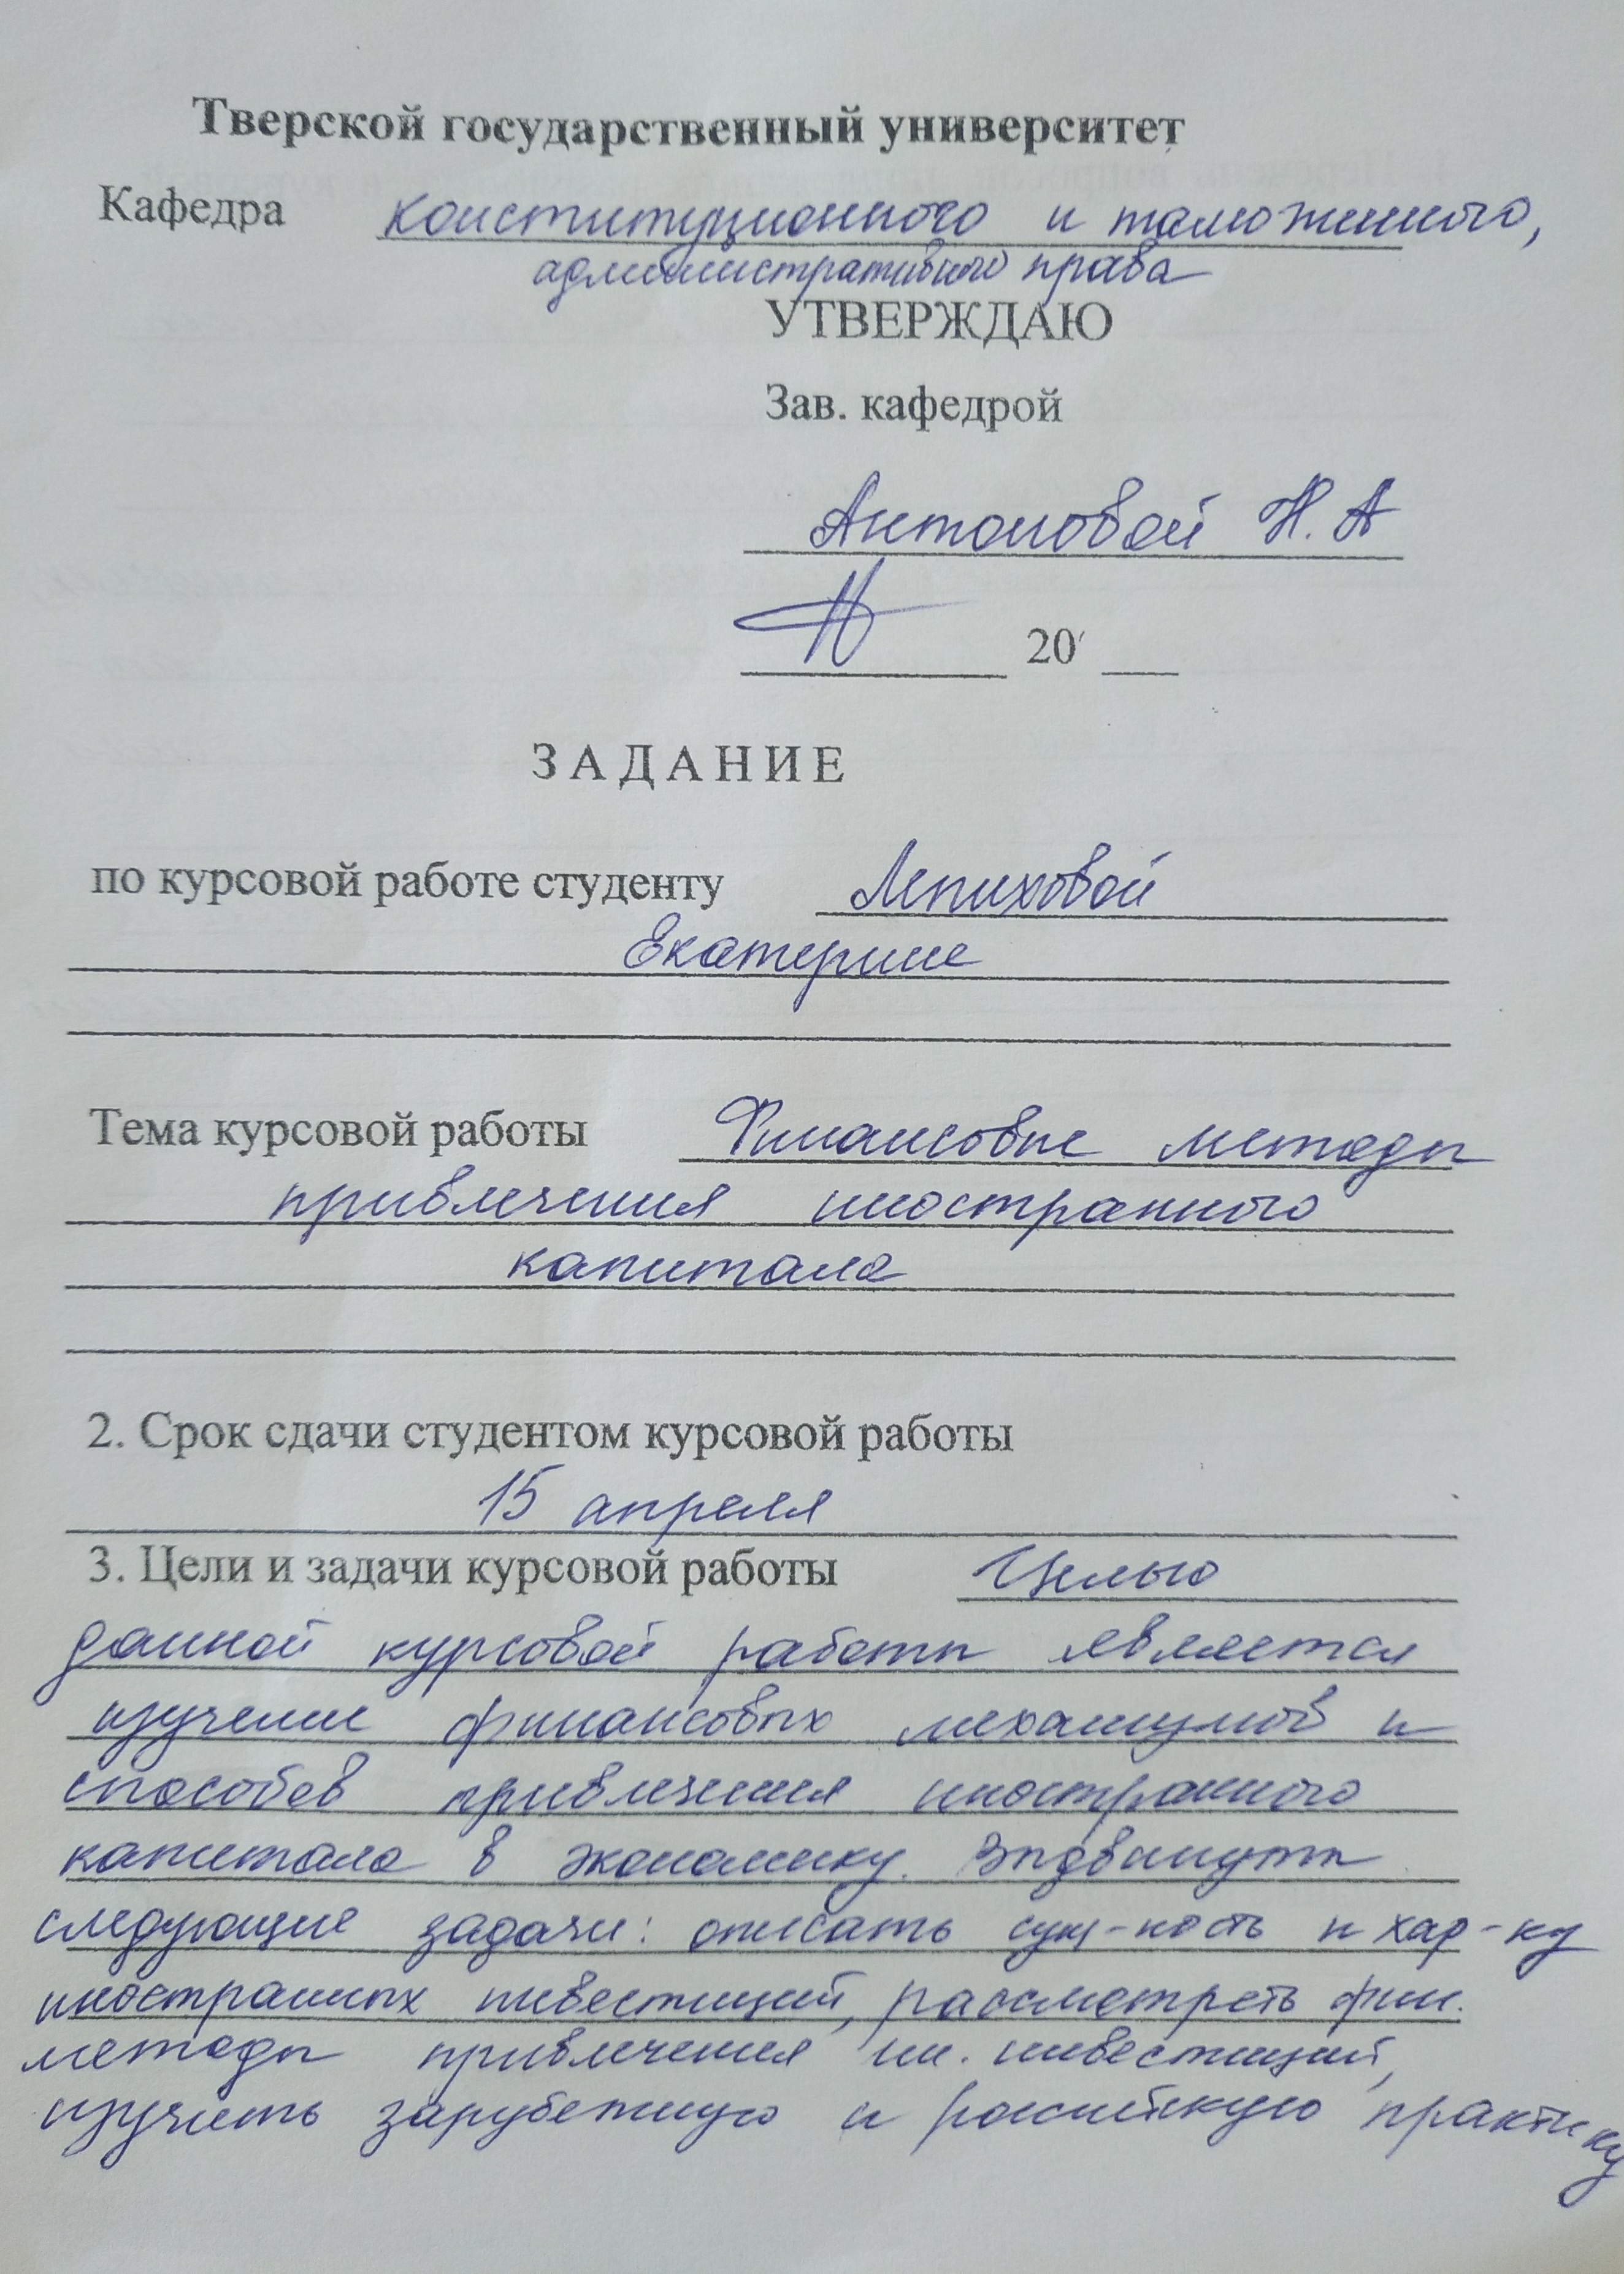 Тверской государственный университет
Кафедра конституционного и таможенного,
административного права
УТВЕРЖДАЮ
Зав. кафедрой
Антоновой Н. А
20
ЗАДАНИЕ
по курсовой работе студенту Лепиховой
Екатерине
Тема курсовой работы Финансовые методы
привлечения иностранного
капитала
2. Срок сдачи студентом курсовой работы
15 апреля
3. Цели и задачи курсовой работы Целью
данной курсовой работы является
изучение финансовых механизмов и
способов привлечения иностранного
капитала в экономику.
следующие задачи: описать сущ-ность и хар-ку
иностранных инвестиций, рассмотреть фин.
методы привлечения ин. инвестиций,
изучить зарубежную и российскую практику